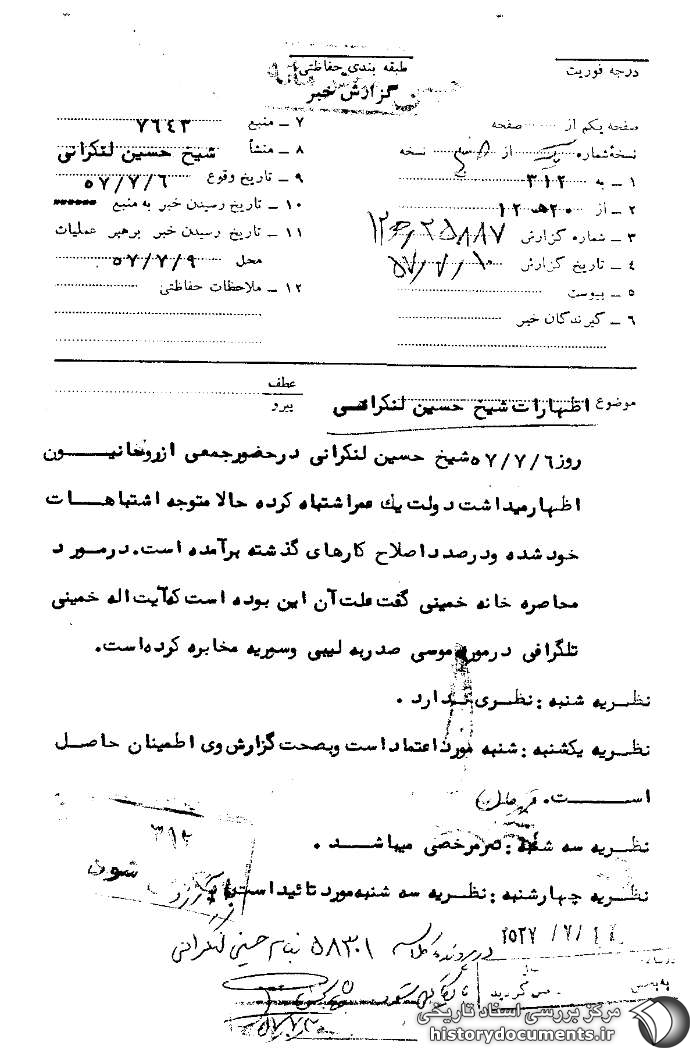 درجه فوریت
طبقه بندی حفاظتی
گزارش خبر
صفحه یکم از صفحه
نسخهٔ شماره یک از نسخه
۱ ــ به ۳۱۲
۲ ــ از ۲۰هـ ۱۲
۳ ــ شماره گزارش ۲۵۸۸۷/هـ۱۲
۴ ــ تاریخ گزارش ۵۷/۷/۱۰
۵ ــ پیوست
۶ ــ گیرندگان خبر
۷ ــ منبع ۷۶۴۳
۸ ــ منشأ شیخ حسین لنکرانی
۹ ــ تاریخ وقوع ۵۷/۷/۶
۱۰ ــ تاریخ رسیدن خبر به منبع
۱۱ ــ تاریخ رسیدن خبر برهبر عملیات
محل ۵۷/۷/۹
۱۲ ــ ملاحظات حفاظتی
عطف
پیرو
موضوع اظهارات شیخ حسین لنکرانی
روز ۵۷/۷/۶ شیخ حسین لنکرانی در حضور جمعی از روحانیون
اظهار میداشت دولت یك عمر اشتباه کرده حالا متوجه اشتباهات
خود شده و در صدد اصلاح کارهای گذشته برآمده است. در مورد
محاصره خانه خمینی گفت علت آن این بوده است که آیت اله خمینی
تلگرافی در مورد موسی صدر به لیبی و سوریه مخابره کرده است.
نظریه شنبه : نظری ندارد .
نظریه یکشنبه : شنبه مورد اعتماد است و بصحت گزارش وی اطمینان حاصل
است.
نظریه سه شنبه : در مرخصی میباشد .
نظریه چهارشنبه : نظریه سه شنبه مورد تائید است.
۳۱۲
شون
۲۵۳۷/۷/۱۴
در پرونده کلاسه ۵۸۳۰۱ بنام حسین لنکرانی
مرکز بررسی اسناد تاریخی
historydocuments.ir